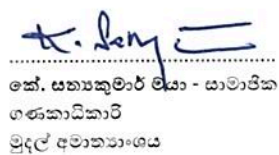 K. Sa
කේ. සත්‍යකුමාර් මයා - සාමාජික
ගණකාධිකාරි
මුදල් අමාත්‍යාංශය